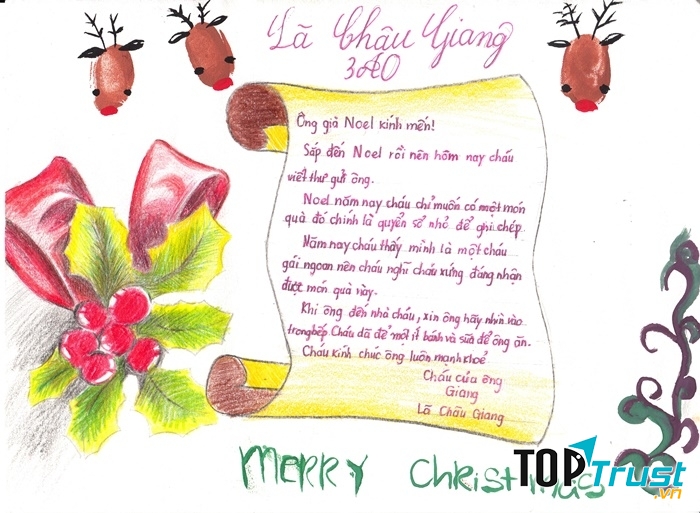 Lã Châu Giang
3A0
Ông già Noel kính mến!
Sắp đến Noel rồi nên hôm nay cháu
viết thư gửi ông.
Noel năm nay cháu chỉ muốn có một món
quà đó chính là quyển sổ nhỏ để ghi chép
Năm nay cháu thấy mình là một cháu
gái ngoan nên cháu nghĩ cháu xứng đáng nhận
được món quà này.
Khi ông đến nhà cháu, xin ông hãy nhìn vào
trong bếp Cháu đã để một ít bánh và sữa để ông ăn.
Cháu kính chúc ông luôn mạnh khoẻ
Cháu của ông
Giang
Lã Châu Giang
MERRY Christmas
TOP Trust.vn